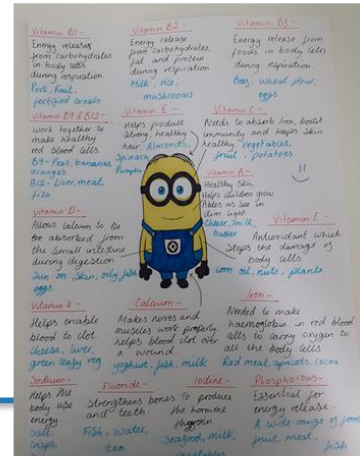 Vitamin B1-
Energy releases
from carbohydrates
in body cells
during respiration
Pork, fruit,
fortified cereals
Vitamin B2 -
Energy release
from carbohydrates,
fat and protein
during respiration
Milk, rice,
mushrooms
Vitamin B3 -
Energy release from
foods in body cells
during respiration.
wheat flour,
eggs
Vitamin B9 & B12-
Work together to
make healthy
red blood cells.
B9 - Peas, bananas
oranges
B12 - Liver, meat,
fish
Vitamin E -
Helps produce
strong, healthy
hair. Almonds,
Spinach
Vitamin C -
Needs to absorb Iron, boost
immunity and keeps skin
healthy. Vegetables,
fruit, potatoes
Vitamin A -
Healthy Skin,
Helps children grow
Aids us see in
dim light
Cheese, milk,
butter
Vitamin D -
Allows calcium to be
be absorbed from
the small intestine
during digestion
Sun on skin, oily fish
eggs.
Vitamin E -
Antioxidant which
Stops the damage of
body cells.
Corn oil, nuts, plants.
Vitamin K -
Helps enable
blood to clot.
Cheese, liver,
green leafy veg
Calcium -
Makes nerves and
muscles work properly,
helps blood clot over
a wound.
yoghurt, fish, milk
Iron -
Needed to make
haemoglobin in red blood
cells to carry oxygen to
all the body cells
Red meat, apricots, cocoa
Sodium -
Helps the
body use
energy
Salt,
crisps
Fluoride -
Strengthens bones
and teeth.
Fish, Water,
tea.
Iodine -
to produce
the hormone
Seafood, milk,
vegetables
Phosphorous -
Essential for
energy release.
A wide range of food
fruit, meat,
fish